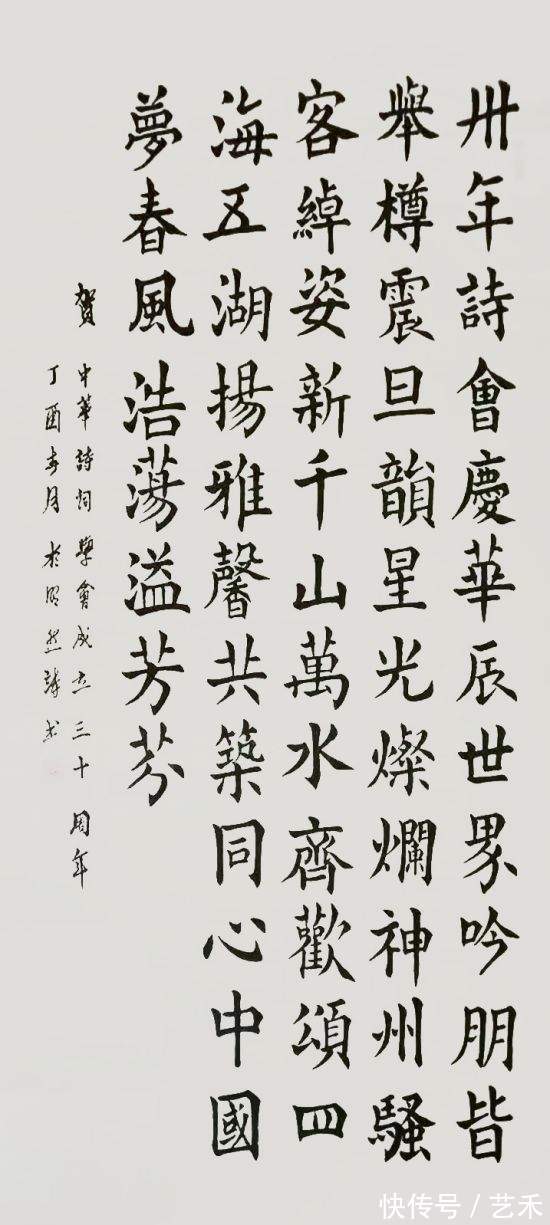 卅年詩會慶華辰世界吟朋皆
舉樽震旦韻星光燦爛神州騷
客綽姿新千山萬水齊歡頌四
海五湖揚雅馨共築同心中國
夢春風浩蕩溢芳芬
賀 中華詩詞學會成立三十周年
丁酉春月於
快传号/艺禾